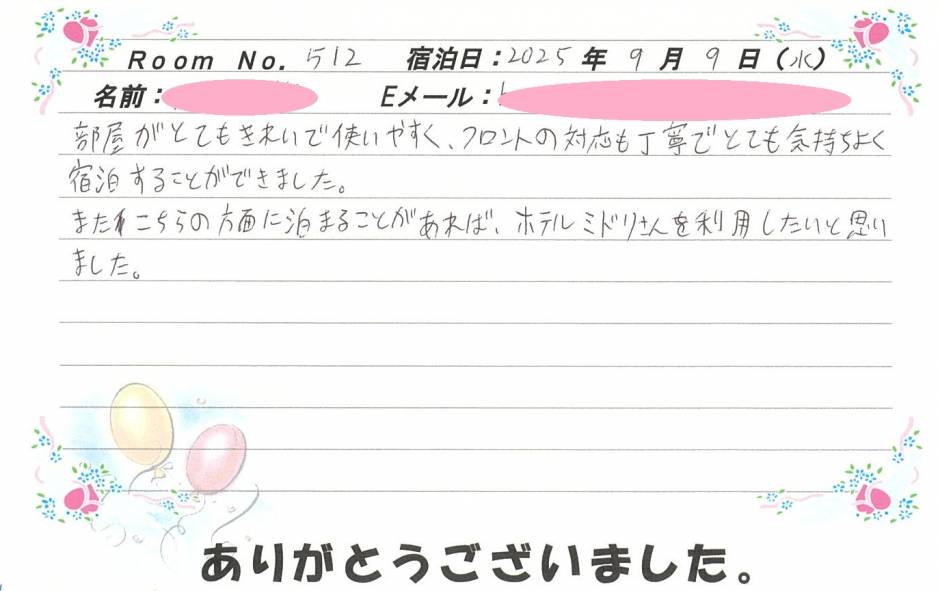 Room No. 512 宿泊日：2025 年 9 月 9 日（水）
名前： Eメール：
部屋がとてもきれいで使いやすく、フロントの対応も丁寧でとても気持ちよく
宿泊することができました。
またこちらの方面に泊まることがあれば、ホテルミドリさんを利用したいと思い
ました。
ありがとうございました。